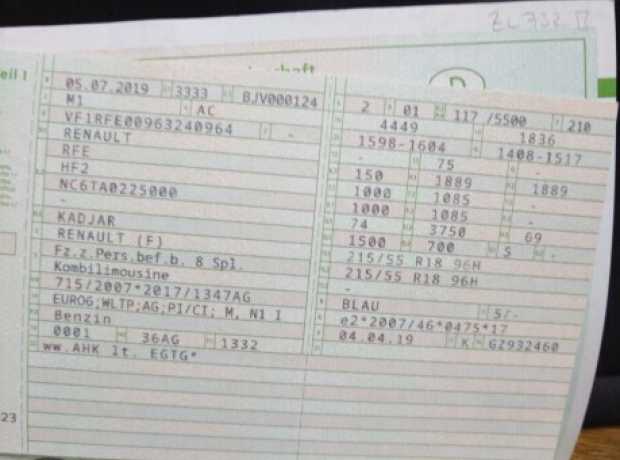 ZL 732
eil I
05.07.2019 3333 BJV000124
M1 AC
VF1RFE00963240964 -
RENAULT
RFE
HF2
NC6TA0225000
-
KADJAR
RENAULT (F)
Fz.z.Pers.bef.b. 8 Spl.
Kombilimousine
715/2007*2017/1347AG
EURO6;WLTP;AG;PI/CI; M, N1 I
Benzin
0001 36AG 1332
ww.AHK lt. EGTG*
23
2 01 117 /5500 210
4449 1836
1598-1604 1408-1517
- 75 -
150 1889 1889
1000 1085 -
1000 1085 -
74 3750 69
1500 700 5 -
215/55 R18 96H
215/55 R18 96H
-
BLAU 5/-
e2*2007/46*0475*17
04.04.19 K GZ932460